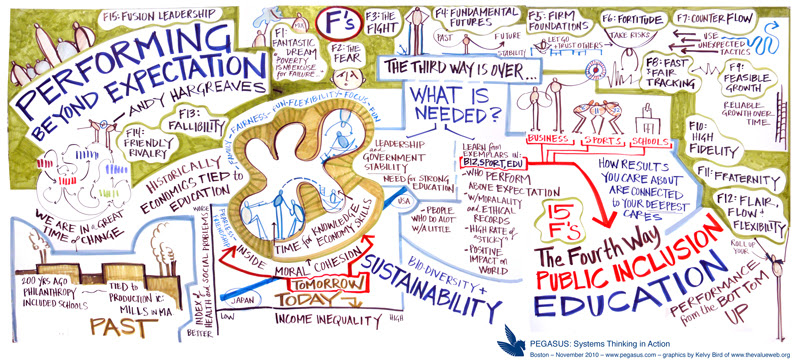 F15: FUSION LEADERSHIP
PERFORMING
BEYOND EXPECTATION
ANDY HARGREAVES
F13:
FALLIBILITY
F14:
FRIENDLY
RIVALRY
WE ARE IN A GREAT
TIME OF CHANGE
HISTORICALLY
ECONOMICS TIED TO
EDUCATION
200 YRS AGO
PHILANTHROPY
INCLUDED SCHOOLS
TIED TO
PRODUCTION
MILLS IN MA
PAST
F's
F1:
FANTASTIC
DREAM
POVERTY
IS NO EXCUSE
FOR FAILURE...
F2: THE
FEAR
F3: THE
FIGHT
F4: FUNDAMENTAL
FUTURES
PAST
FUTURE
STABILITY
F5: FIRM
FOUNDATIONS
LET GO
+ TRUST OTHERS
F6: FORTITUDE
TAKE RISKS
F7: COUNTER FLOW
USE
UNEXPECTED
TACTICS
F8: FAST
+ FAIR
TRACKING
F9:
FEASIBLE
GROWTH
RELIABLE
GROWTH OVER
TIME
F10:
HIGH
FIDELITY
F11: FRATERNITY
F12: FLAIR,
FLOW +
FLEXIBILITY
ROLL UP
YOUR
PERFORMANCE
from the BOTTOM
UP
THE THIRD WAY IS OVER...
WHAT IS
NEEDED?
LEADERSHIP
AND
GOVERNMENT
STABILITY
NEED FOR STRONG
EDUCATION
LEARN from
EXEMPLARS IN:
BIZ, SPORT, EDU
-WHO PERFORM
ABOVE EXPECTATION
-W/ MORALITY
AND ETHICAL
RECORDS
-HIGH RATE of
"STICKY"
-POSITIVE
IMPACT on
WORLD
-PEOPLE
WHO DO A LOT
W/ A LITTLE
BUSINESS
SPORTS
SCHOOLS
HOW RESULTS
YOU CARE ABOUT
ARE CONNECTED
to YOUR DEEPEST
CARES
15
F's
The Fourth Way
PUBLIC INCLUSION
EDUCATION
FAMILY-FAIRNESS-FUN-FLEXIBILITY-FOCUS-FUN
TIME for KNOWLEDGE
ECONOMY SKILLS
INSIDE
MORAL COHESION
TOMORROW
TODAY
BIO-DIVERSITY +
SUSTAINABILITY
WORSE
INDEX of
HEALTH and SOCIAL PROBLEMS
BETTER
USA
JAPAN
LOW
INCOME INEQUALITY
HIGH
PEGASUS: Systems Thinking in Action
Boston – November 2010 – www.pegasus.com – graphics by Kelvy Bird of www.thevalueweb.org